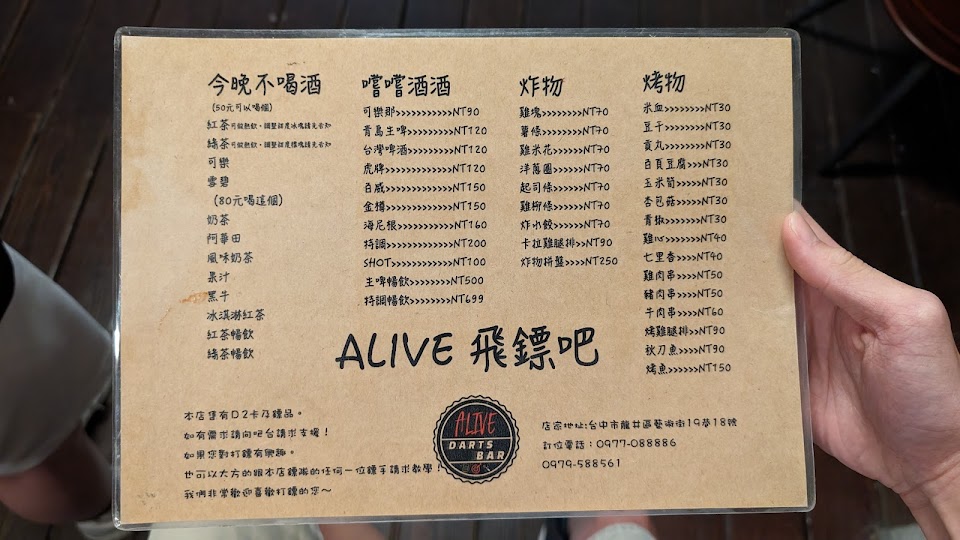 今晚不喝酒
(50元可以喝個)
紅茶可做熱飲,調整甜度冰塊請先告知
綠茶可做熱飲,調整甜度冰塊請先告知
可樂
雪碧
(80元喝這個)
奶茶
阿華田
風味奶茶
果汁
黑牛
冰淇淋紅茶
紅茶暢飲
綠茶暢飲
嚐嚐酒酒
可樂那>>>>>>>>>>>NT90
青島生啤>>>>>>>>>NT120
台灣啤酒>>>>>>>>>NT120
虎牌>>>>>>>>>>>>NT120
百威>>>>>>>>>>>>NT150
金樽>>>>>>>>>>>>NT150
海尼根>>>>>>>>>>>NT160
特調>>>>>>>>>>>>NT200
SHOT>>>>>>>>>>>>NT100
生啤暢飲>>>>>>>>NT500
特調暢飲>>>>>>>>NT699
炸物
雞塊>>>>>>>NT70
薯條>>>>>>>NT70
雞米花>>>>>NT70
洋蔥圈>>>>>NT70
起司條>>>>>NT70
雞柳條>>>>>NT70
炸水餃>>>>>NT70
卡拉雞腿排>>NT90
炸物拼盤>>>>NT250
烤物
米血>>>>>>>>NT30
豆干>>>>>>>NT30
貢丸>>>>>>>NT30
百頁豆腐>>>NT30
玉米筍>>>>>NT30
杏包菇>>>>>NT30
青椒>>>>>>>NT30
雞心>>>>>>NT40
七里香>>>>NT40
雞肉串>>>>NT50
豬肉串>>>>NT50
牛肉串>>>>NT60
烤雞腿排>>NT90
秋刀魚>>>>NT90
烤魚>>>>>>NT150
ALIVE 飛鏢吧
本店僅有D2卡及鏢品。
如有需求請向吧台請求支援!
如果您對打鏢有興趣。
也可以大方的跟本店鏢靶的任何一位鏢手請求教學
我們非常歡迎喜歡打鏢的您~
ALIVE
DARTS
BAR
店家地址:台中市龍井區藝術街19巷18號
訂位電話:0977-088886
0979-588561